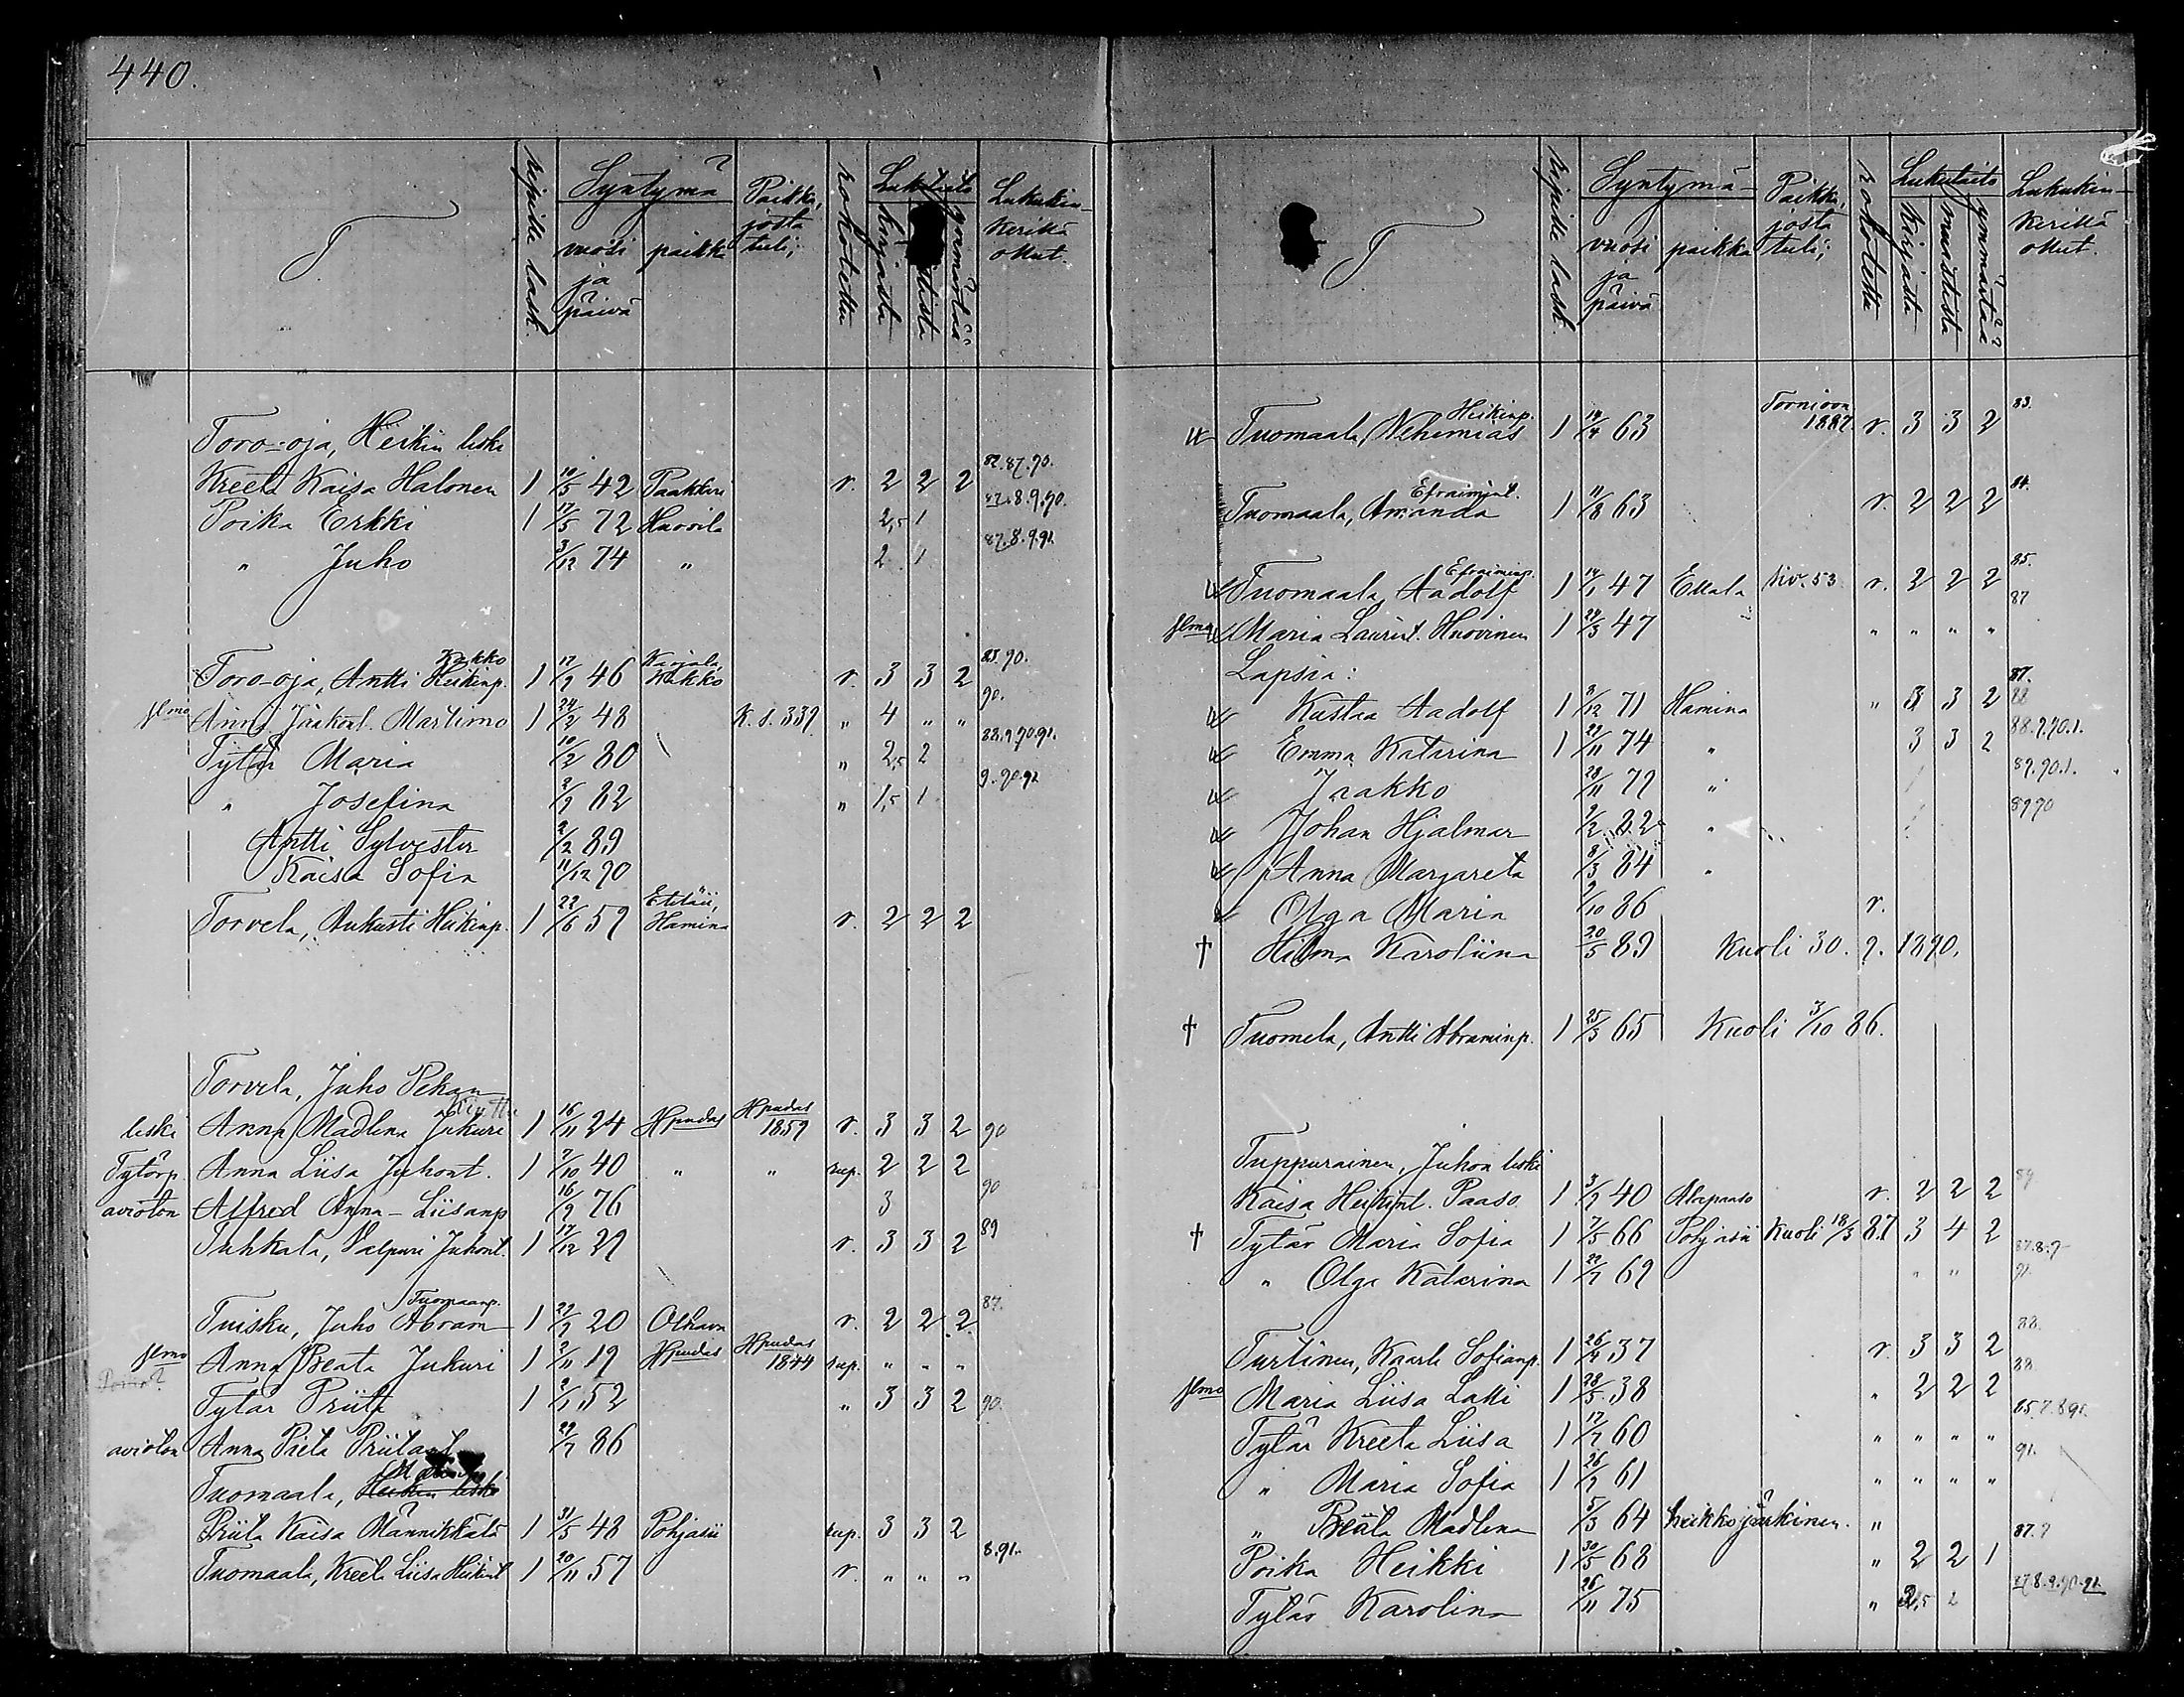 440.
T.
ripille lask.
Syntymä
vuosi ja päivä
paikka
Paikka, josta tuli;
rokotettu
Lukutaito
kirjasta
ymmärtää
Lukukinkerillä ollut.
Toro-oja, Heikin leski
Kreeta Kaisa Halonen 1 10/5 42 Paakkari r. 2 2 2 82.87.90.
Poika Erkki 1 17/5 72 Huovila 2,5 1 87.8.9.90.
" Juho 3/12 74 " 2 1 87.8.9.91.
Kakko Karjala
Toro-oja, Antti Heikinp. 1 17/9 46 Kakko r. 3 3 2 85.90.
flmo Anna Jaakont. Martimo 1 24/2 48 K. s. 339 " 4 " " 90.
Tytär Maria 10/2 80 " 2,5 2 88.9.90.91.
" Josefina 2/9 82 " 1,5 1 9.90.91
Antti Sylvester 2/2 89
Kaisa Sofia 11/12 90
Torvela, Aukusti Heikinp. 1 22/6 59 Etelä-ii, Hamina r. 2 2 2
Torvela, Juho Pekan
leski Anna Madlena Jukuri 1 16/11 24 Hpudas Hpudas 1859 r. 3 3 2 90
Tytärp. Anna Liisa Juhont. 1 7/10 40 " " rup. 2 2 2
avioton Alfred Anna-Liisanp 16/9 76 3 90
Tuhkala, Valpuri Juhont. 1 17/12 29 r. 3 3 2 89
Tuomaanp.
Tuisku, Juho Abram 1 29/9 20 Olhava r. 2 2 2 87.
flmo Anna Beata Jukuri 1 2/11 19 Hpudas Hpudas 1844 rup. " " "
Tytär Priita 1 2/1 52 " 3 3 2 90.
avioton Anna Pieta Priitant 29/7 86
Tuomaala, Heikin leski
Priita Kaisa Männikkälä 1 31/5 48 Pohjasii rup. 3 3 2
Tuomaala, Kreeta Liisa Heikint 1 20/11 57 r. " " " 8.91.
T
ripille lask.
Syntymä-
vuosi ja päivä
paikka
Paikka, josta tuli;
rokotettu
Lukutaito
kirjasta
muistista
ymmärtää
Lukukinkerillä ollut.
Heikinp.
Tuomaala, Nehemias 1 14/4 63 Tornioon 1887. r. 3 3 2 83.
Efraimint.
Tuomaala, Amanda 1 11/8 63 r. 2 2 2 84.
Efraiminp.
Tuomaala, Aadolf 1 14/1 47 Ellala siv. 53 r. 2 2 2 85.
flmo Maria Laurint. Huovinen 1 24/3 47 " " " " 87
Lapsia:
Kustaa Aadolf 1 8/12 71 Hamina " 3 3 2 87. 88
Emma Katarina 1 29/11 74 " 3 3 2 88.9.90.1.
Jaakko 28/11 79 " 89.90.1.
Johan Hjalmar 9/2 82 " 89 90
Anna Margareta 8/3 84 "
Olga Maria 9/10 86 r.
† Hilma Karoliina 20/5 89 Kuoli 30. 9. 1890.
† Tuomela, Antti Abraminp. 1 25/3 65 Kuoli 3/10 86.
Tuppurainen, Juhon leski
Kaisa Heikint. Paaso 1 3/9 40 Alapaaso r. 2 2 2 89
† Tytär Maria Sofia 1 7/5 66 Pohjasii Kuoli 18/3 87 3 4 2
" Olga Katarina 1 22/7 69 " " 87.8.9 91.
Turtinen, Kaarle Sofianp. 1 26/2 37 r. 3 3 2 88.
flmo Maria Liisa Lakki 1 28/5 38 " 2 2 2 88
Tytär Kreeta Liisa 1 17/7 60 " " " " 85.7.8.91.
" Maria Sofia 1 26/9 61 " " " " 91.
" Beata Madlena 5/3 64 heikkojärkinen. "
Poika Heikki 1 30/5 68 " 2 2 1 87.9
Tytär Karolina 26/11 75 " 2,5 2 87.8.9.90.91